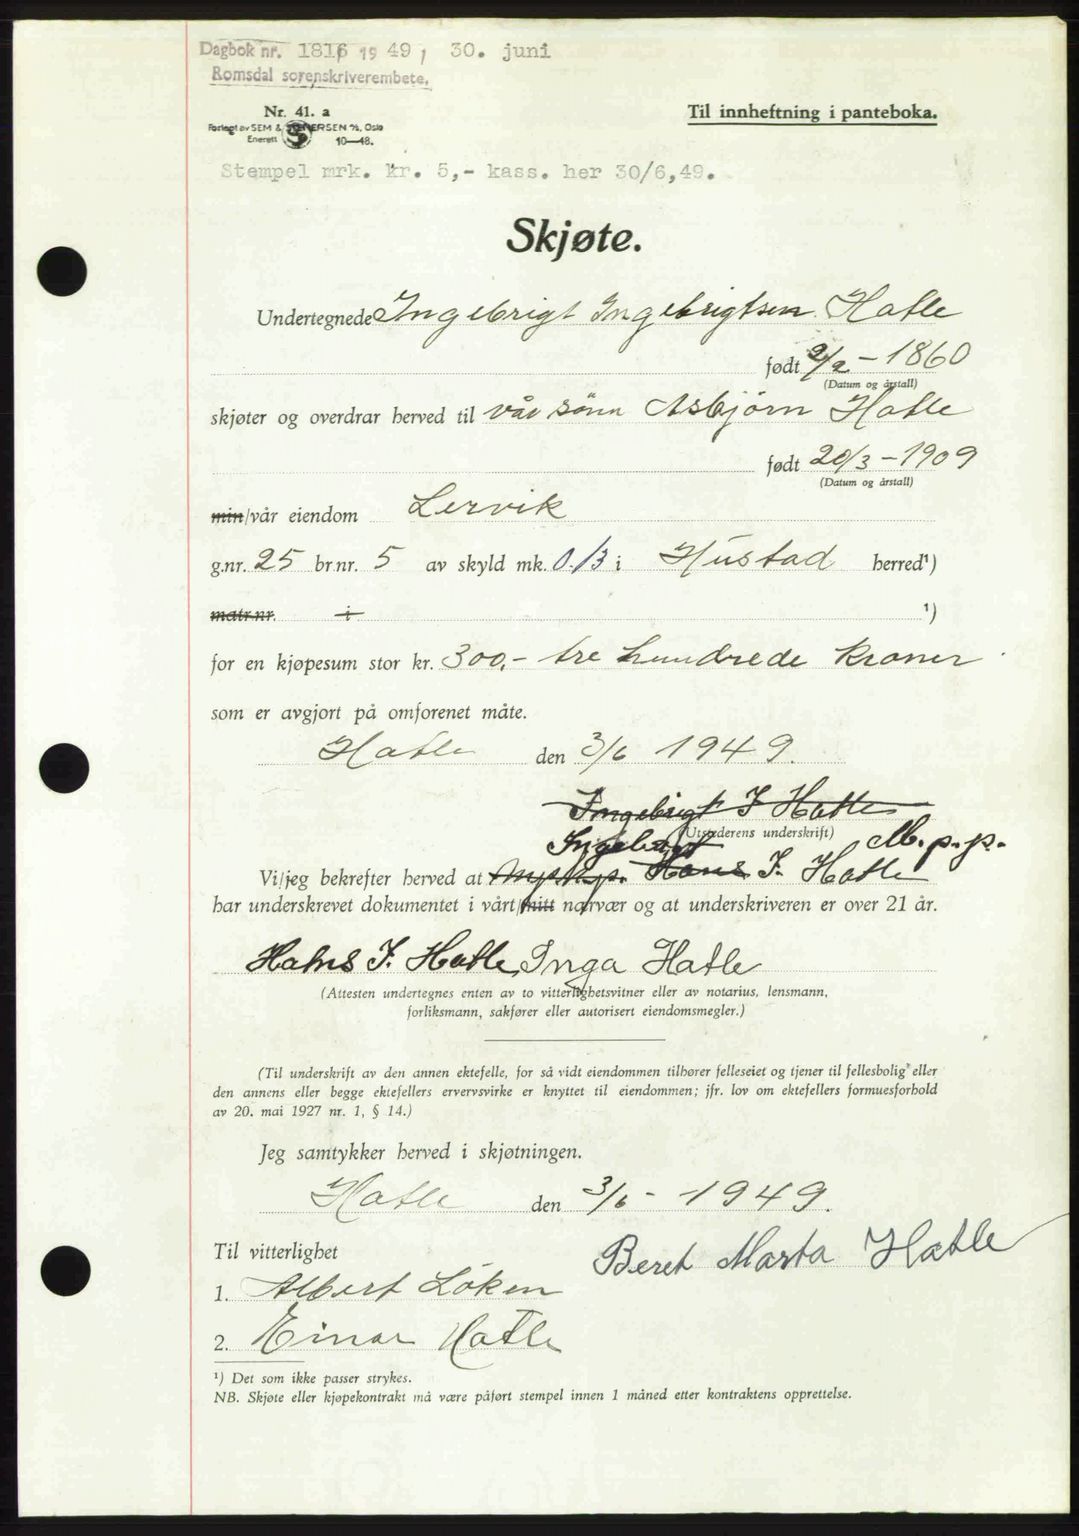 Dagbok nr. 1816 1949, 30. juni
Romsdal sorenskriverembete.
Nr. 41. a
Til innheftning i panteboka.
Forlagt av SEM & STENERSEN A/S, Oslo
Enerett 10—48.
Stempel mrk. kr. 5,- kass. her 30/6,49.
Skjøte.
Undertegnede Ingebrigt Ingebrigtsen Hatle
født 2/2 - 1860
(Datum og årstall)
skjøter og overdrar herved til vår sönn Asbjörn Hatle
født 20/3 - 1909
(Datum og årstall)
min/vår eiendom Lervik
g.nr. 25 br.nr. 5 av skyld mk. 0.13 i Hustad herred¹)
matr.nr. i ¹)
for en kjøpesum stor kr. 300,- tre hundrede kroner
som er avgjort på omforenet måte.
Hatle den 3/6 1949.
Ingebrigt I Hatle
(Utstederens underskrift)
Ingebrigt M.p.p.
Vi/jeg bekrefter herved at Hans I. Hatle
har underskrevet dokumentet i vårt/mitt nærvær og at underskriveren er over 21 år.
Hans I. Hatle, Inga Hatle
(Attesten undertegnes enten av to vitterlighetsvitner eller av notarius, lensmann,
forliksmann, sakfører eller autorisert eiendomsmegler.)
(Til underskrift av den annen ektefelle, for så vidt eiendommen tilhører felleseiet og tjener til fellesbolig eller
den annens eller begge ektefellers ervervsvirke er knyttet til eiendommen; jfr. lov om ektefellers formuesforhold
av 20. mai 1927 nr. 1, § 14.)
Jeg samtykker herved i skjøtningen.
Hatle den 3/6 - 1949.
Til vitterlighet
Beret Marta Hatle
1. Albert Löken
2. Einar Hatle
¹) Det som ikke passer strykes.
NB. Skjøte eller kjøpekontrakt må være påført stempel innen 1 måned etter kontraktens opprettelse.